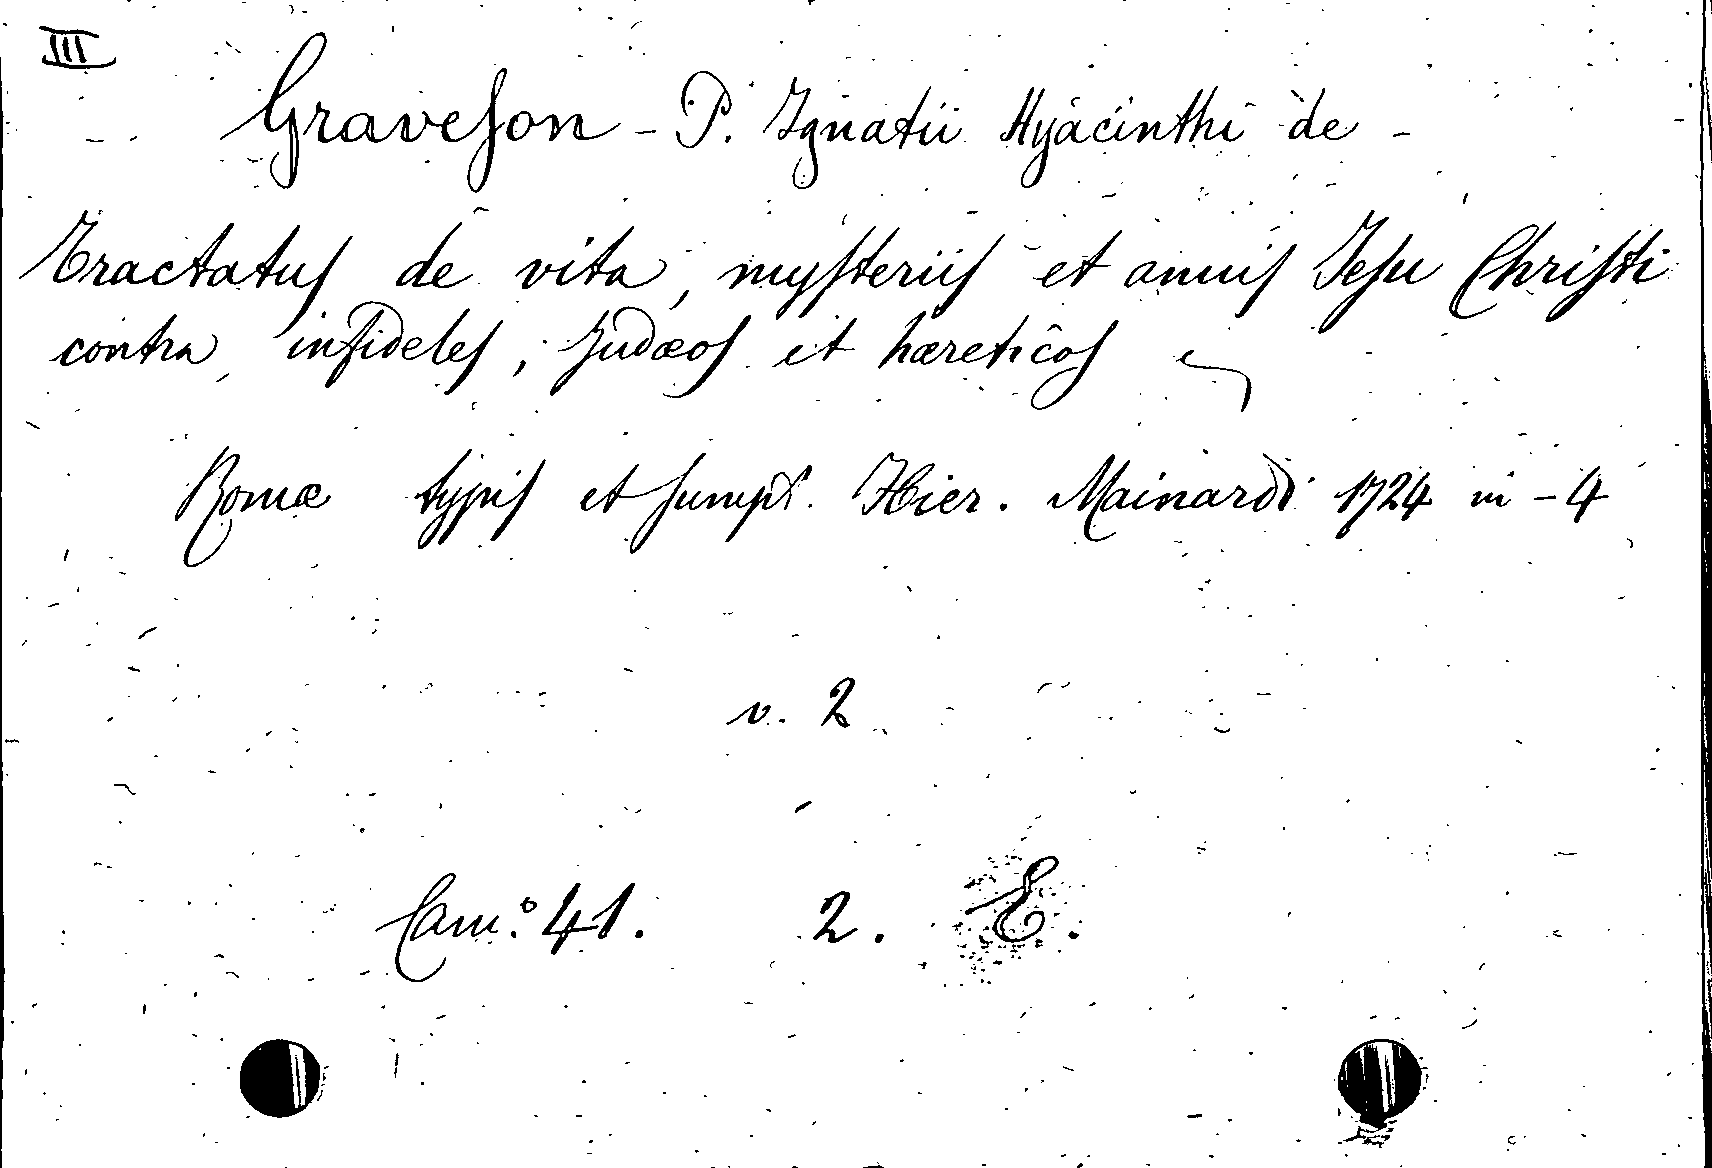 III
Graveson - P. Ignatii Hyacinthi de -
Tractatus de vita, mysteriis et annis Jesu Christi
contra infideles, Judæos et hæreticos
Romæ typis et sumpt. Hier. Mainardi 1724 in - 4
v. 2
Cam.º 41. 2. E.